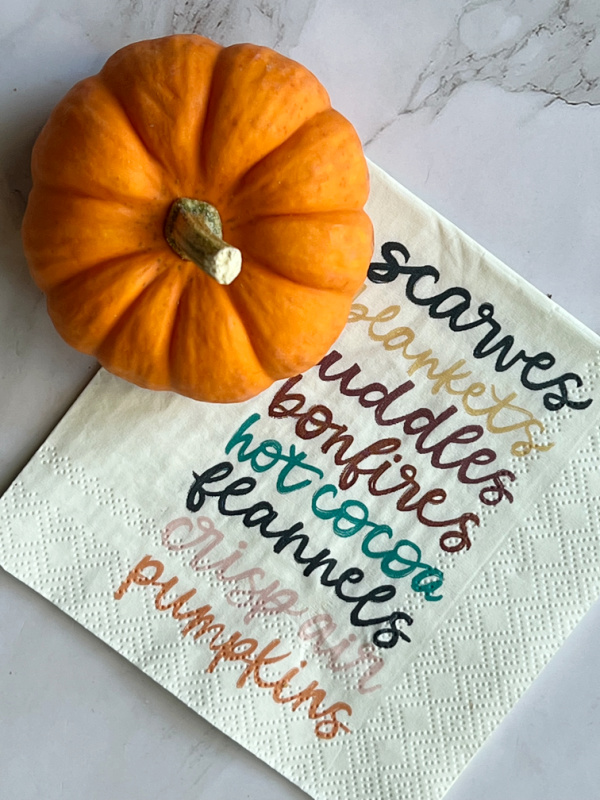 scarves
blankets
uddles
bonfires
hot cocoa
flannels
crisp air
pumpkins